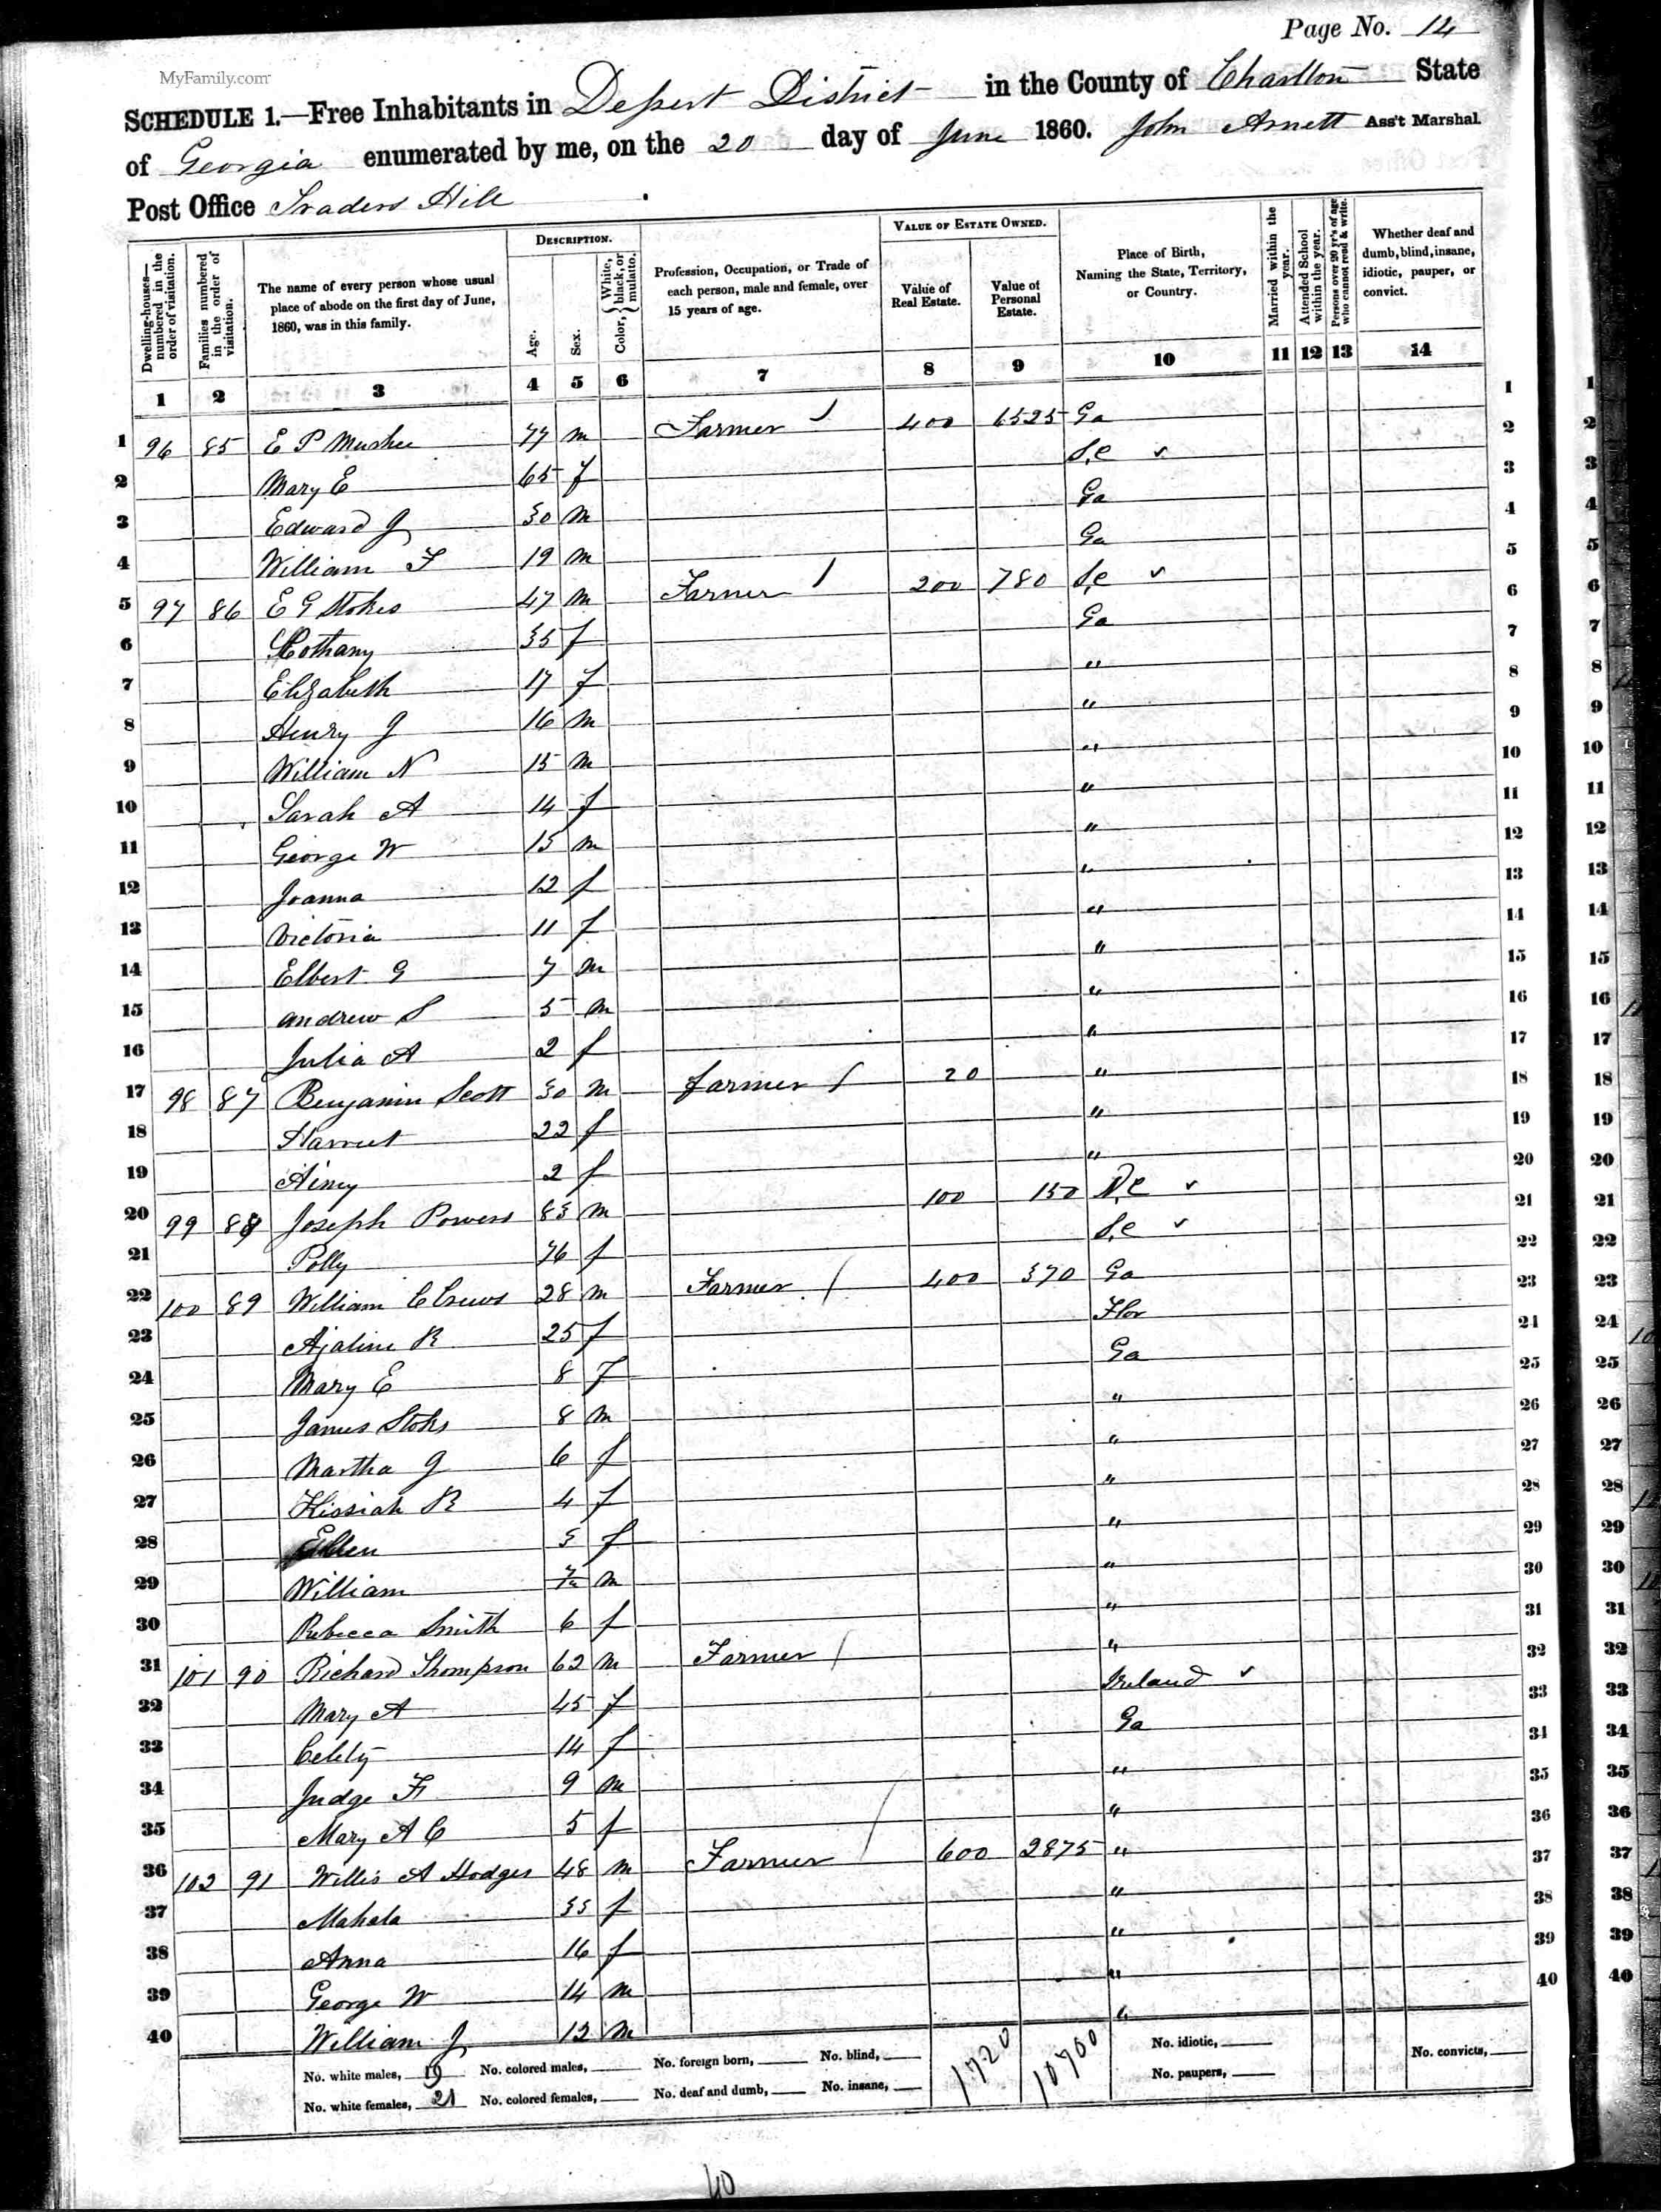 Page No. 14
MyFamily.com
SCHEDULE 1.—Free Inhabitants in Depert District in the County of Charlton State
of Georgia enumerated by me, on the 20 day of June 1860. John Arnett Ass't Marshal.
Post Office Traders Hill
Dwelling-houses—numbered in the order of visitation.
Families numbered in the order of visitation.
The name of every person whose usual place of abode on the first day of June, 1860, was in this family.
DESCRIPTION.
Age.
Sex.
Color, { White, black, or mulatto.
Profession, Occupation, or Trade of each person, male and female, over 15 years of age.
VALUE OF ESTATE OWNED.
Value of Real Estate.
Value of Personal Estate.
Place of Birth, Naming the State, Territory, or Country.
Married within the year.
Attended School within the year.
Persons over 20 yr's of age who cannot read & write.
Whether deaf and dumb, blind, insane, idiotic, pauper, or convict.
1 2 3 4 5 6 7 8 9 10 11 12 13 14
1 96 85 E P 77 m Farmer 400 6525 Ga 1
2 Mary E 65 f S.C 2
3 Edward J 30 m Ga 3
4 William F 19 m Ga 4
5 97 86 E G Stokes 47 m Farmer 200 780 S.C 5
6 35 f Ga 6
7 Elizabeth 17 f " 7
8 Henry J 16 m " 8
9 William N 15 m " 9
10 Sarah A 14 f " 10
11 George W 15 m " 11
12 Joanna 12 f " 12
13 Victoria 11 f " 13
14 Elbert G 7 m " 14
15 Andrew S 5 m " 15
16 Julia A 2 f " 16
17 98 87 Benjamin Scott 30 m farmer 20 " 17
18 Harriet 22 f " 18
19 Aimy 2 f " 19
20 99 88 Joseph Powers 83 m 100 150 N.C 20
21 Polly 76 f S.C 21
22 100 89 William C Crews 28 m Farmer 400 370 Ga 22
23 Ajaline R 25 f Flor 23
24 Mary E 8 f Ga 24
25 James Stoks 8 m " 25
26 Martha J 6 f " 26
27 Kissiah R 4 f " 27
28 Ellen 3 f " 28
29 William m " 29
30 Rebecca Smith 6 f " 30
31 101 90 Richard Thompson 62 m Farmer " 31
32 Mary A 45 f Ireland 32
33 14 f Ga 33
34 Judge F 9 m " 34
35 Mary A C 5 f " 35
36 102 91 Willis A Hodges 48 m Farmer 600 2875 " 36
37 Mahala 33 f " 37
38 Anna 16 f " 38
39 George W 14 m " 39
40 William J 12 m " 40
No. white males, 19 No. colored males, No. foreign born, No. blind, 1720 10700 No. idiotic, No. convicts,
No. white females, 21 No. colored females, No. deaf and dumb, No. insane, No. paupers,
40